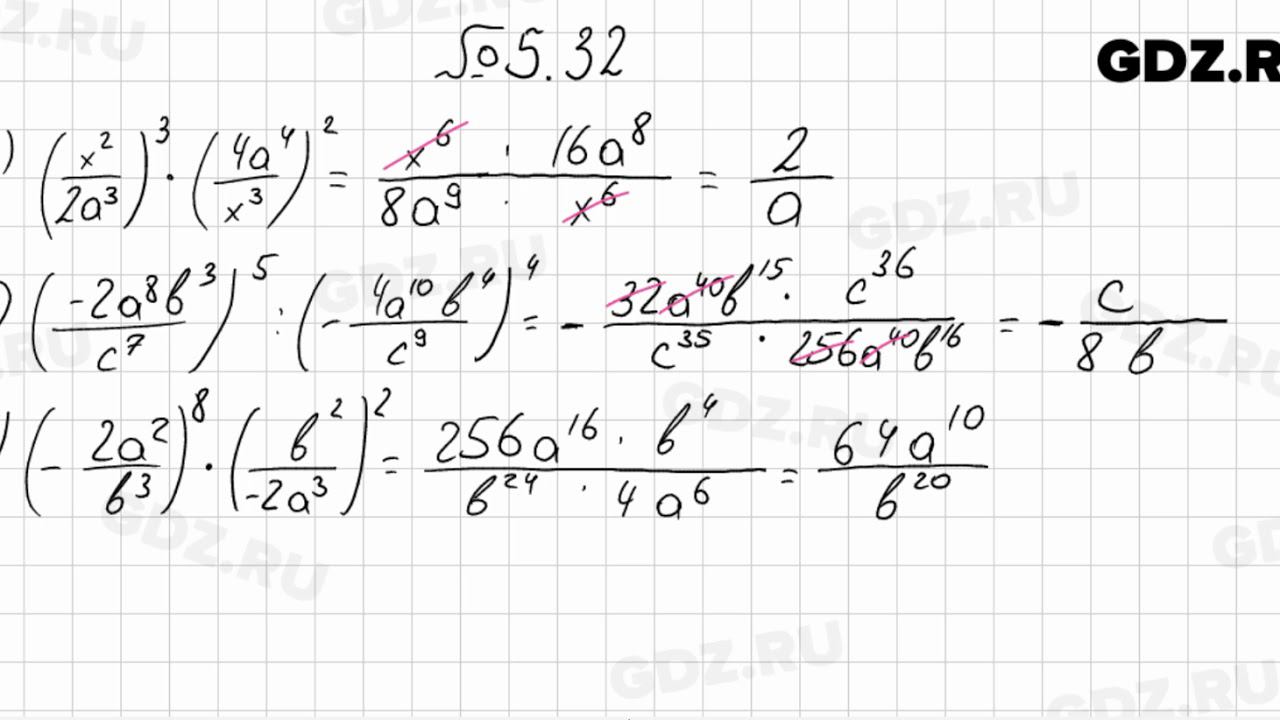 № 5.32
GDZ.R
) (x²/2a³)³ · (4a⁴/x³)² = x⁶ · 16a⁸ / 8a⁹ · x⁶ = 2/a
) (-2a⁸b³/c⁷)⁵ : (-4a¹⁰b⁴/c⁹)⁴ = - 32a⁴⁰b¹⁵ · c³⁶ / c³⁵ · 256a⁴⁰b¹⁶ = - c/8b
) (-2a²/b³)⁸ · (b²/-2a³)² = 256a¹⁶ · b⁴ / b²⁴ · 4a⁶ = 64a¹⁰/b²⁰